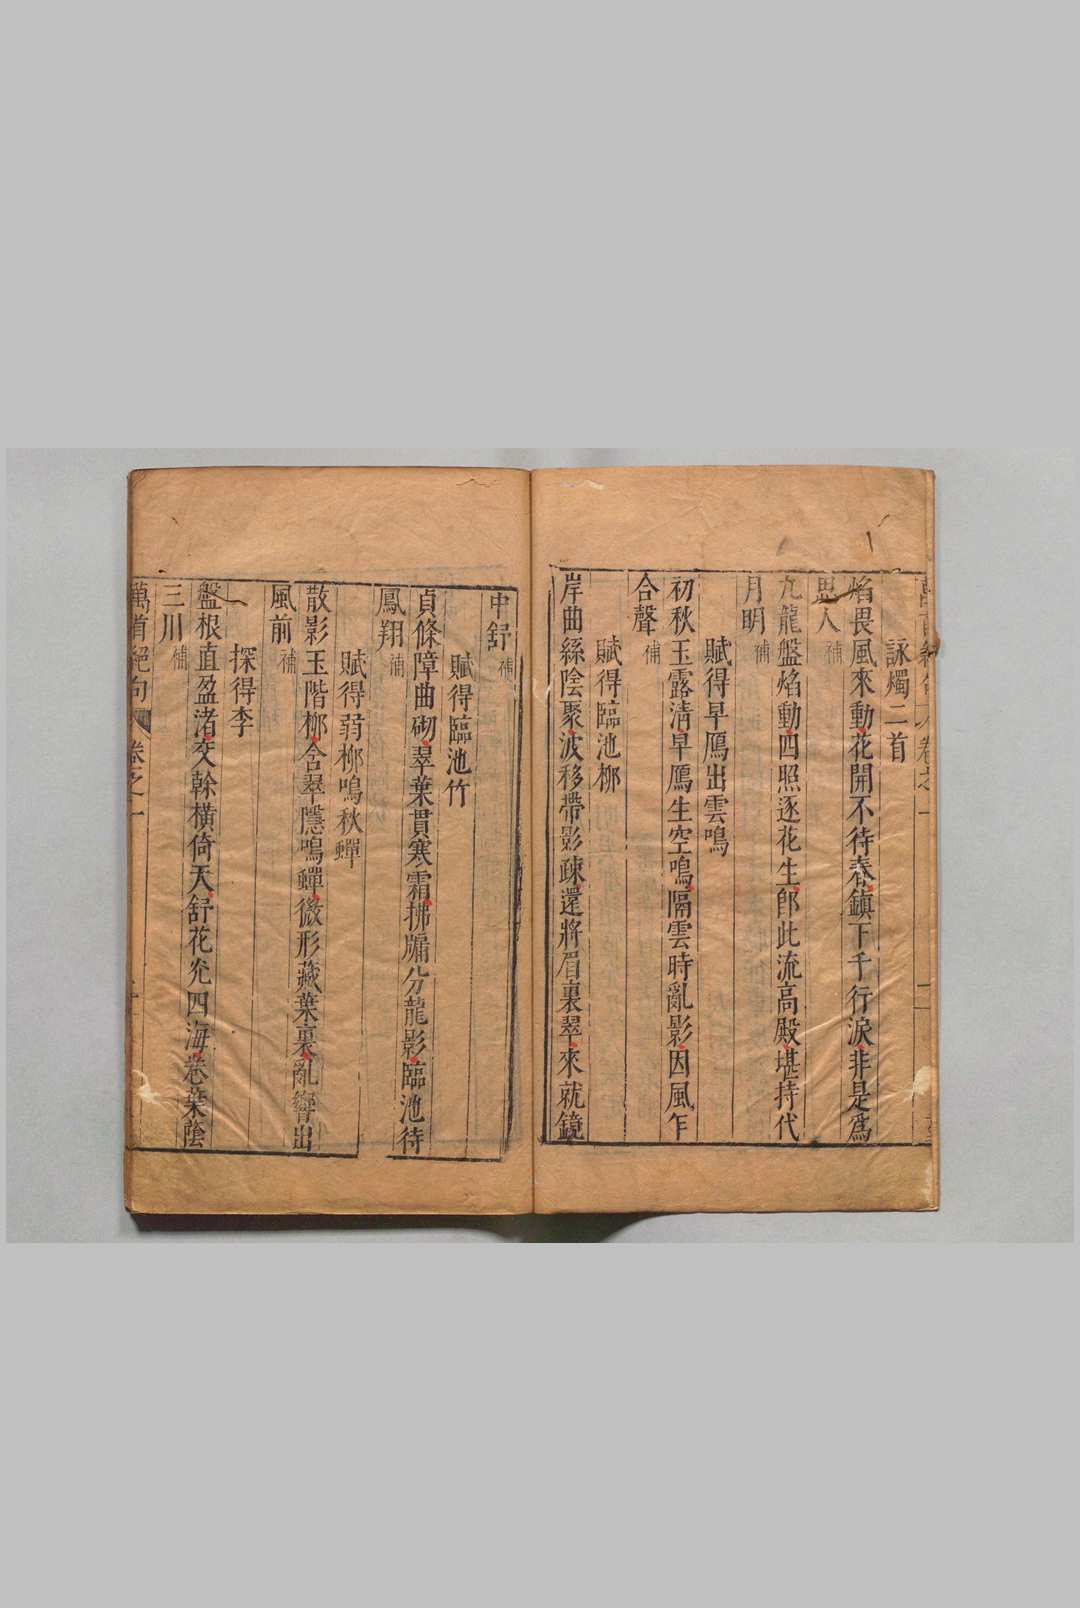 詠燭二首
焰畏風來動花開不待春鎮下千行淚非是為
思人補
九龍蟠焰動四照逐花生即此流高殿堪持代
月明補
賦得早鴈出雲鳴
初秋玉露清早鴈生空鳴隔雲時亂影因風乍
合聲補
賦得臨池柳
岸曲絲陰聚波移帶影疎還將眉裏翠來就鏡
中舒補
賦得臨池竹
貞條障曲砌翠葉貫寒霜拂牖分龍影臨池待
鳳翔補
賦得弱柳鳴秋蟬
散影玉階柳含翠隱鳴蟬微形藏葉裏亂響出
風前補
探得李
盤根直盈渚交幹橫倚天舒花光四海卷葉蔭
三川補
萬首絕句 卷之一